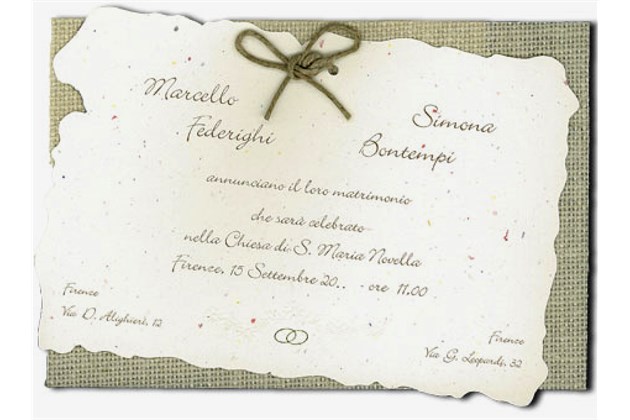 Marcello
Federighi
Simona
Bontempi
annunciano il loro matrimonio
che sarà celebrato
nella Chiesa di S. Maria Novella
Firenze, 15 Settembre 20.. - ore 11,00
Firenze
Via D. Alighieri, 12
Firenze
Via G. Leopardi, 32